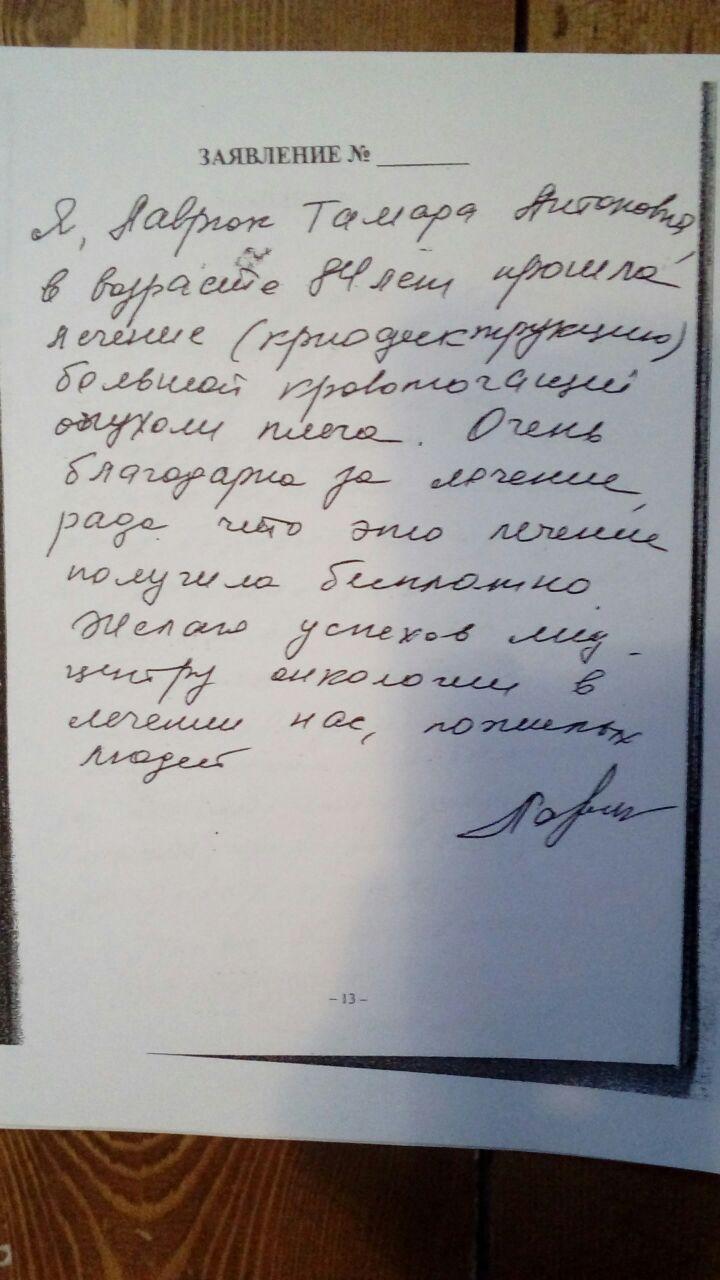 ЗАЯВЛЕНИЕ № ________
Я, Лаврюк Тамара Антоновна,
в возрасте 84 лет прошла
лечение (криодеструкцию)
большой кровоточащий
опухоли плеча. Очень
благодарна за лечение,
рада что это лечение
получила бесплатно.
Желаю успехов мед-
центру онкологии в
лечении нас, пожилых
людей
– 13 –